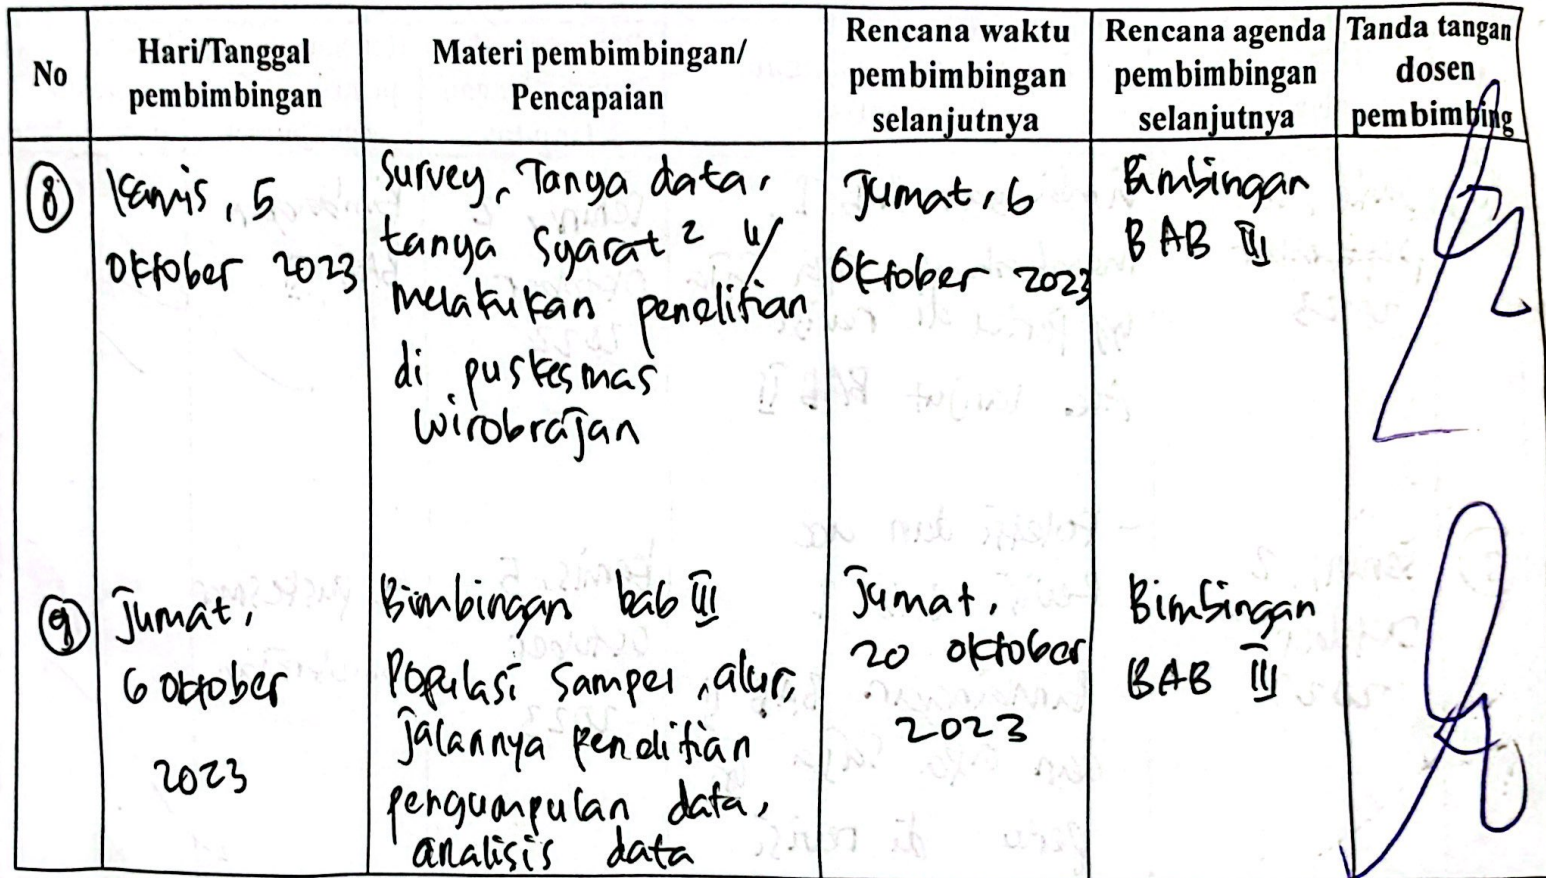 No
Hari/Tanggal
pembimbingan
Materi pembimbingan/
Pencapaian
Rencana waktu
pembimbingan
selanjutnya
Rencana agenda
pembimbingan
selanjutnya
Tanda tangan
dosen
pembimbing
8
Kamis, 5
Oktober 2023
Survey, Tanya data,
tanya Syarat² u/
melakukan penelitian
di puskesmas
wirobrajan
Jumat, 6
Oktober 2023
Bimbingan
BAB III
9
Jumat,
6 oktober
2023
Bimbingan bab III
Populasi Sampel, alur,
jalannya penelitian
pengumpulan data,
analisis data
Jumat,
20 oktober
2023
Bimbingan
BAB III